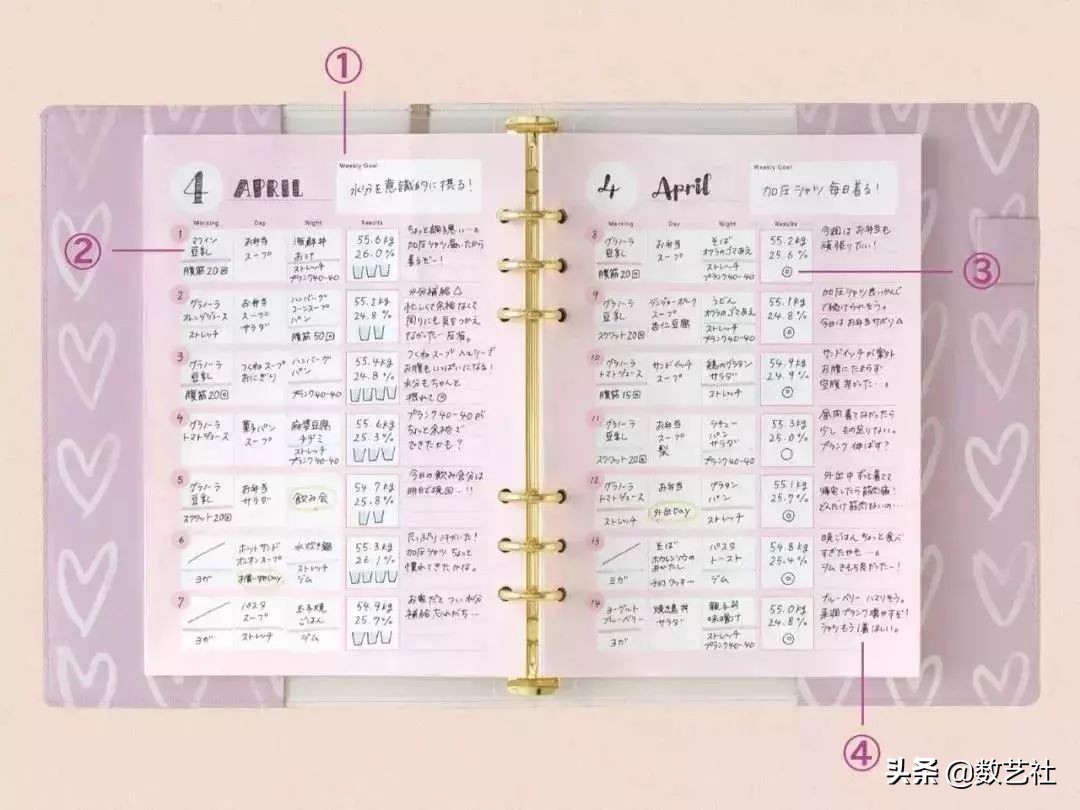 ①
Weekly Goal
4 APRIL
水分を意識的に摂る!
Morning Day Night Results
②
1
豆乳
腹筋20回
お弁当
スープ
海鮮丼
おけ
ストレッチ
プランク40-40
55.6kg
26.0%
2
グラノーラ
オレンジジュース
ストレッチ
お弁当
スープ
サラダ
ハンバーグ
コーンスープ
パン
腹筋50回
55.2kg
24.8%
水分補給△
忙しくて余裕なくて
周りにも気をつかえ
なかった…反省。
3
グラノーラ
豆乳
腹筋20回
つくねスープ
おにぎり
ハンバーグ
パン
プランク40-40
55.4kg
24.8%
つくねスープヘルシーで
お腹もいっぱいになる!
水分もちゃんと
摂れて◎
4
グラノーラ
トマトジュース
菓子パン
スープ
麻婆豆腐
チヂミ
ストレッチ
プランク40-40
55.6kg
25.3%
プランク40-40が
ちょっと余裕で
できたかも?
5
グラノーラ
豆乳
スクワット20回
お弁当
サラダ
飲み会
54.7kg
25.8%
今日の飲み会分は
明日で挽回…!!
6
ヨガ
ホットサンド
オニオンスープ
お買い物Day
水炊き鍋
ストレッチ
ジム
55.3kg
26.1%
たっぷり汗かいた!
加圧シャツちょっと
慣れてきたかな。
7
ヨガ
パスタ
スープ
ストレッチ
玉子焼
ごはん
ジム
54.9kg
25.7%
お家だとつい水分
補給忘れがち…
Weekly Goal
4 April
加圧シャツ毎日着る!
Morning Day Night Results
③
8
グラノーラ
豆乳
腹筋20回
お弁当
スープ
そば
オクラのゴマあえ
ストレッチ
プランク40-40
55.2kg
25.6%
◎
今週はお弁当も
頑張りたい!
9
グラノーラ
豆乳
スクワット20回
ジンジャーポーク
スープ
杏仁豆腐
うどん
オクラのゴマあえ
ストレッチ
プランク40-40
55.1kg
24.8%
◎
加圧シャツ良いかんじ
で続けられそう。
今日はお弁当サボり△
10
グラノーラ
トマトジュース
腹筋15回
サンドイッチ
スープ
鶏のグラタン
サラダ
ストレッチ
54.9kg
24.9%
◎
サンドイッチが案外
お腹にたまらず
空腹辛かった…。
11
グラノーラ
豆乳
スクワット20回
お弁当
スープ
梨
シチュー
パン
サラダ
プランク40-40
55.3kg
25.0%
○
昼間着てなかったら
少しもの足りない。
プランク伸ばす?
12
グラノーラ
トマトジュース
ストレッチ
お弁当
外出Day
グラタン
パン
ストレッチ
55.1kg
25.7%
◎
外出中ずっと着てて
帰宅したら筋肉痛…
どんだけ筋肉ないの…
13
ヨガ
そば
ホウレンソウの
おかたし
チョコクッキー
パスタ
トースト
ジム
54.8kg
25.4%
◎
晩ごはんちょっと食べ
すぎたかも…。
ジムきもち良かったー!
14
ヨーグルト
ブルーベリー
ヨガ
焼き鳥丼
サラダ
親子丼
味噌汁
ストレッチ
プランク40-40
55.0kg
24.8%
◎
ブルーベリーハマりそう。
来週プランク増やすぞ!
シャツもう1着ほしい。
④
头条 @数艺社